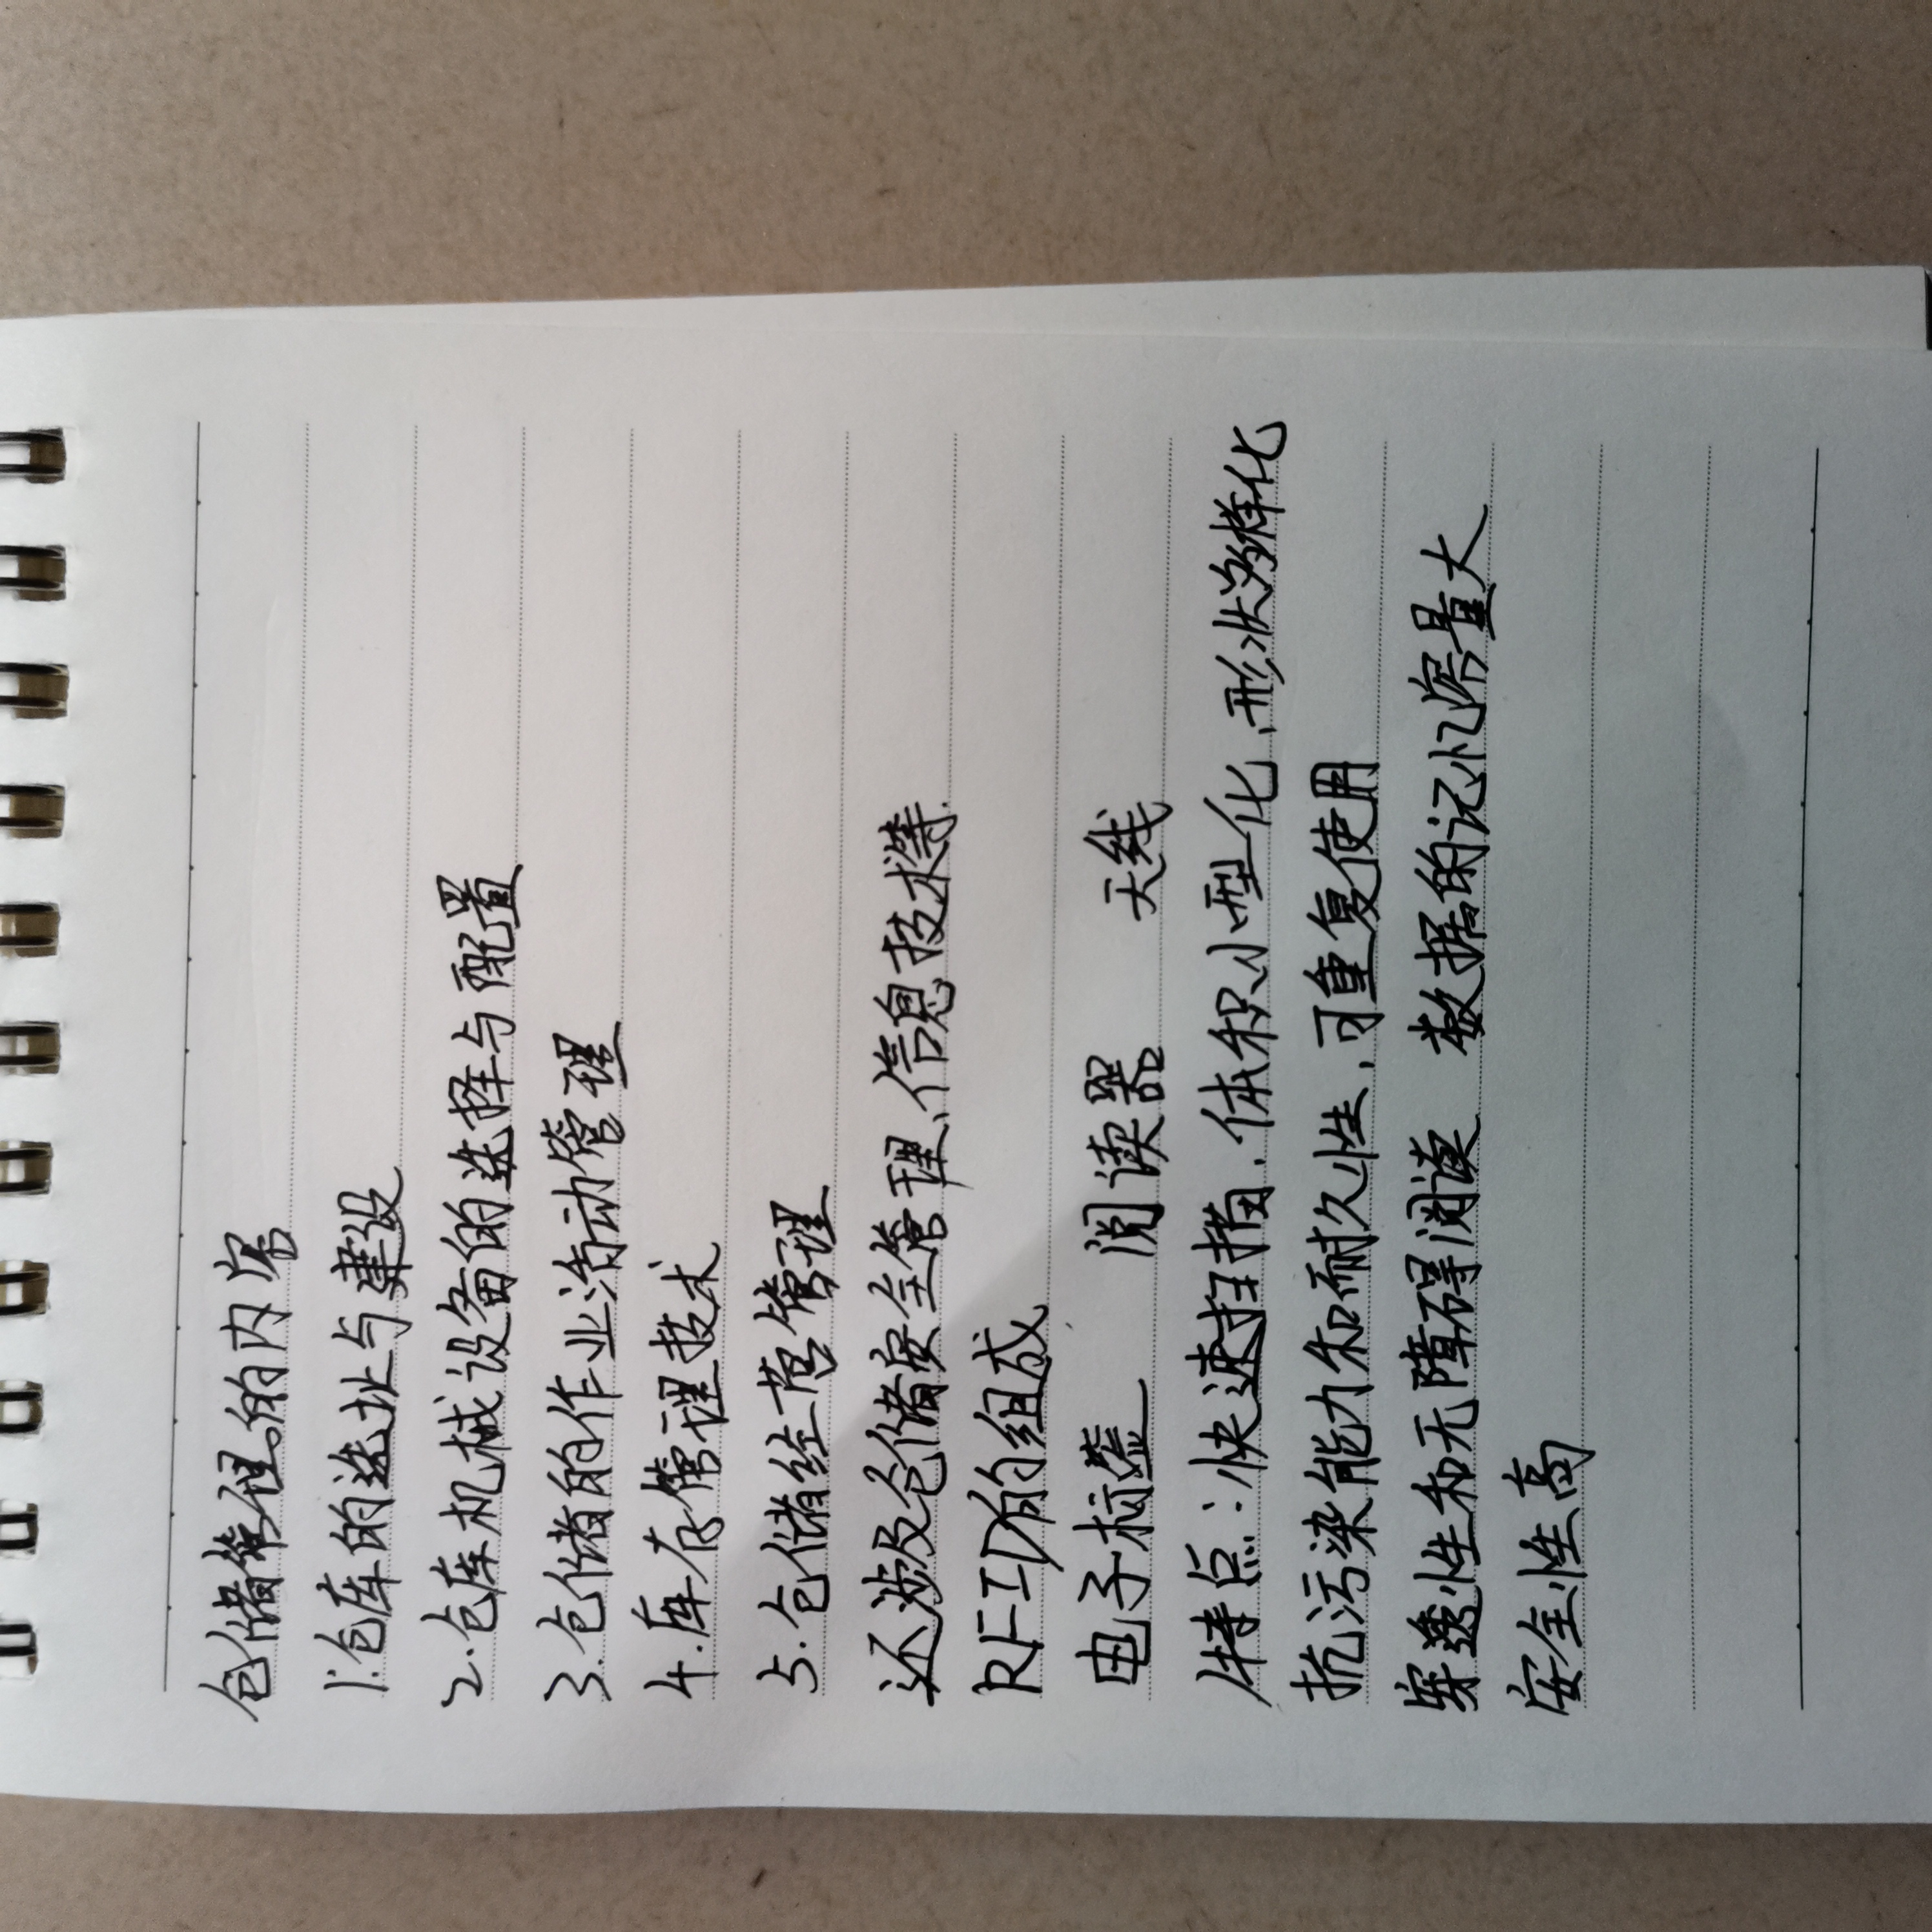 仓储管理的内容
1.仓库的选址与建设
2.仓库机械设备的选择与配置
3.仓储的作业活动管理
4.库存管理技术
5.仓储经营管理
还涉及仓储安全管理、信息技术等.
RFID的组成
电子标签 阅读器 天线
特点:快速扫描、体积小型化、形状多样化
抗污染能力和耐久性、可重复使用
穿透性和无障碍阅读 数据的记忆容量大
安全性高